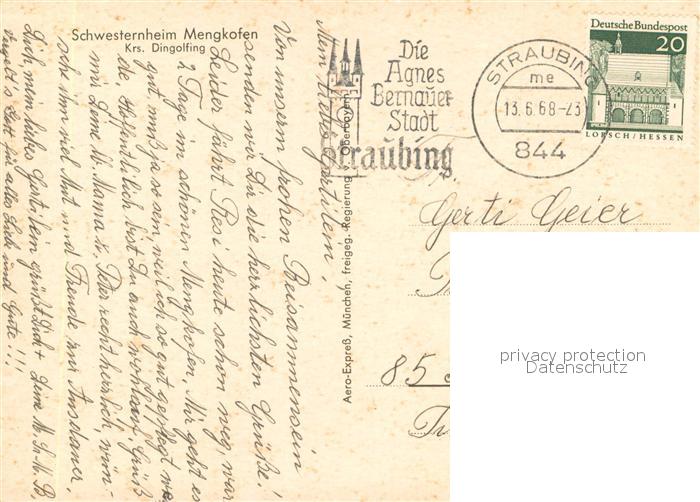 Schwesternheim Mengkofen
Krs. Dingolfing
Mein liebes Gertilein!
Von unserm frohen Beisammensein
senden wir Dir die herrlichsten Grüße!
Leider fährt Resi heute schon weg, war
2 Tage im schönen Mengkofen. Mir geht es
gut, muß ja so sein, weil ich so gut gepflegt we
de. Hoffentlich bist Du auch wohlauf. Grüß
mir Deine lb. Mama u. Peter recht herzlich, wün-
sche ihm viel Mut und Freude zur Ausdauer.
Dich, mein liebes Gertilein grüßt Dich + Deine M.
Vergelt's Gott für alles Lieb und Gute!!!
Aero-Expreß, München, freigeg. Regierung v. Oberbayern
Die
Agnes
Bernauer
Stadt
Straubing
STRAUBING
me
13.6.68-23
844
Deutsche Bundespost
20
LORSCH/HESSEN
Gerti Geier
85
privacy protection
Datenschutz